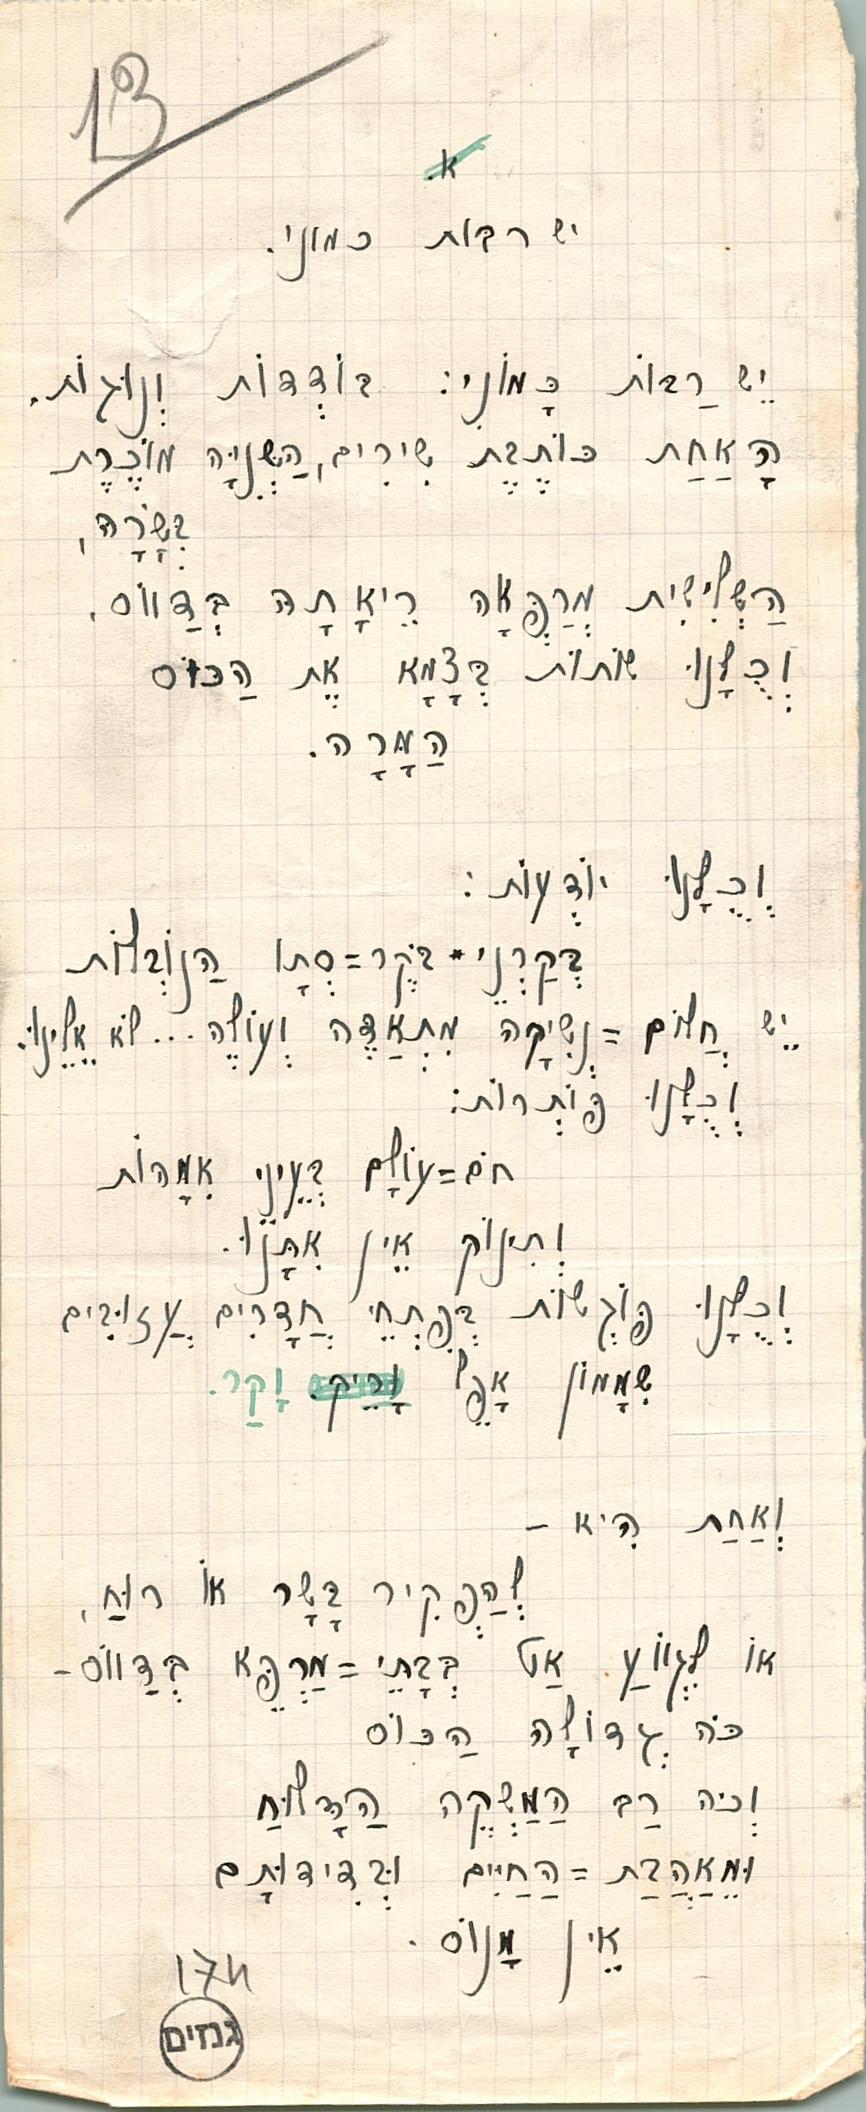 13
א.
יש רבות כמוני.
יֵשׁ רַבּוֹת כָּמוֹנִי: בּוֹדְדוֹת וְנוּגוֹת,
הָאַחַת כּוֹתֶבֶת שִׁירִים, הַשְּׁנִיָּה מוֹכֶרֶת
בְּשָׂרָהּ,
הַשְּׁלִישִׁית מְרַפְּאָה רֵיאָתָהּ בְּדַווֹס,
וְכֻלָּנוּ שׁוֹתוֹת בְּצָמָא אֶת הַכּוֹס
הַמָּרָה.
וְכֻלָּנוּ יוֹדְעוֹת:
בְּקַרְנֵי-בֹּקֶר=סְתָו הַנּוֹבְלוֹת
יֵשׁ חֲלוֹם=נְשִׁיקָה מִתְאַדֶּה וְעוֹלֶה... לֹא אֵלֵינוּ.
וְכֻלָּנוּ פּוֹתְרוֹת:
חֹם=עוֹלָם בְּעֵינֵי אִמָּהוֹת
וְתִינוֹק אֵין אִתָּנוּ.
וְכֻלָּנוּ פּוֹגְשׁוֹת בְּפִתְחֵי חֲדָרִים עֲזוּבִים
שִׁמָמוֹן אָפֵל וָרֵיק. וָקַר.
וְאַחַת הִיא –
לְהַפְקִיר בָּשָׂר אוֹ רוּחַ,
אוֹ לִגְווֹעַ אַט בְּבָתֵּי=מַרְפֵּא בְּדַווֹס –
כֹּה גְדוֹלָה הַכּוֹס
וְכֹה רַב הַמַּשְׁקֶה הַדָּלוּחַ
וּמֵאַהֲבַת=הַחַיִּים וּבְדִידוּתָם
אֵין מָנוֹס.
174
גנזים